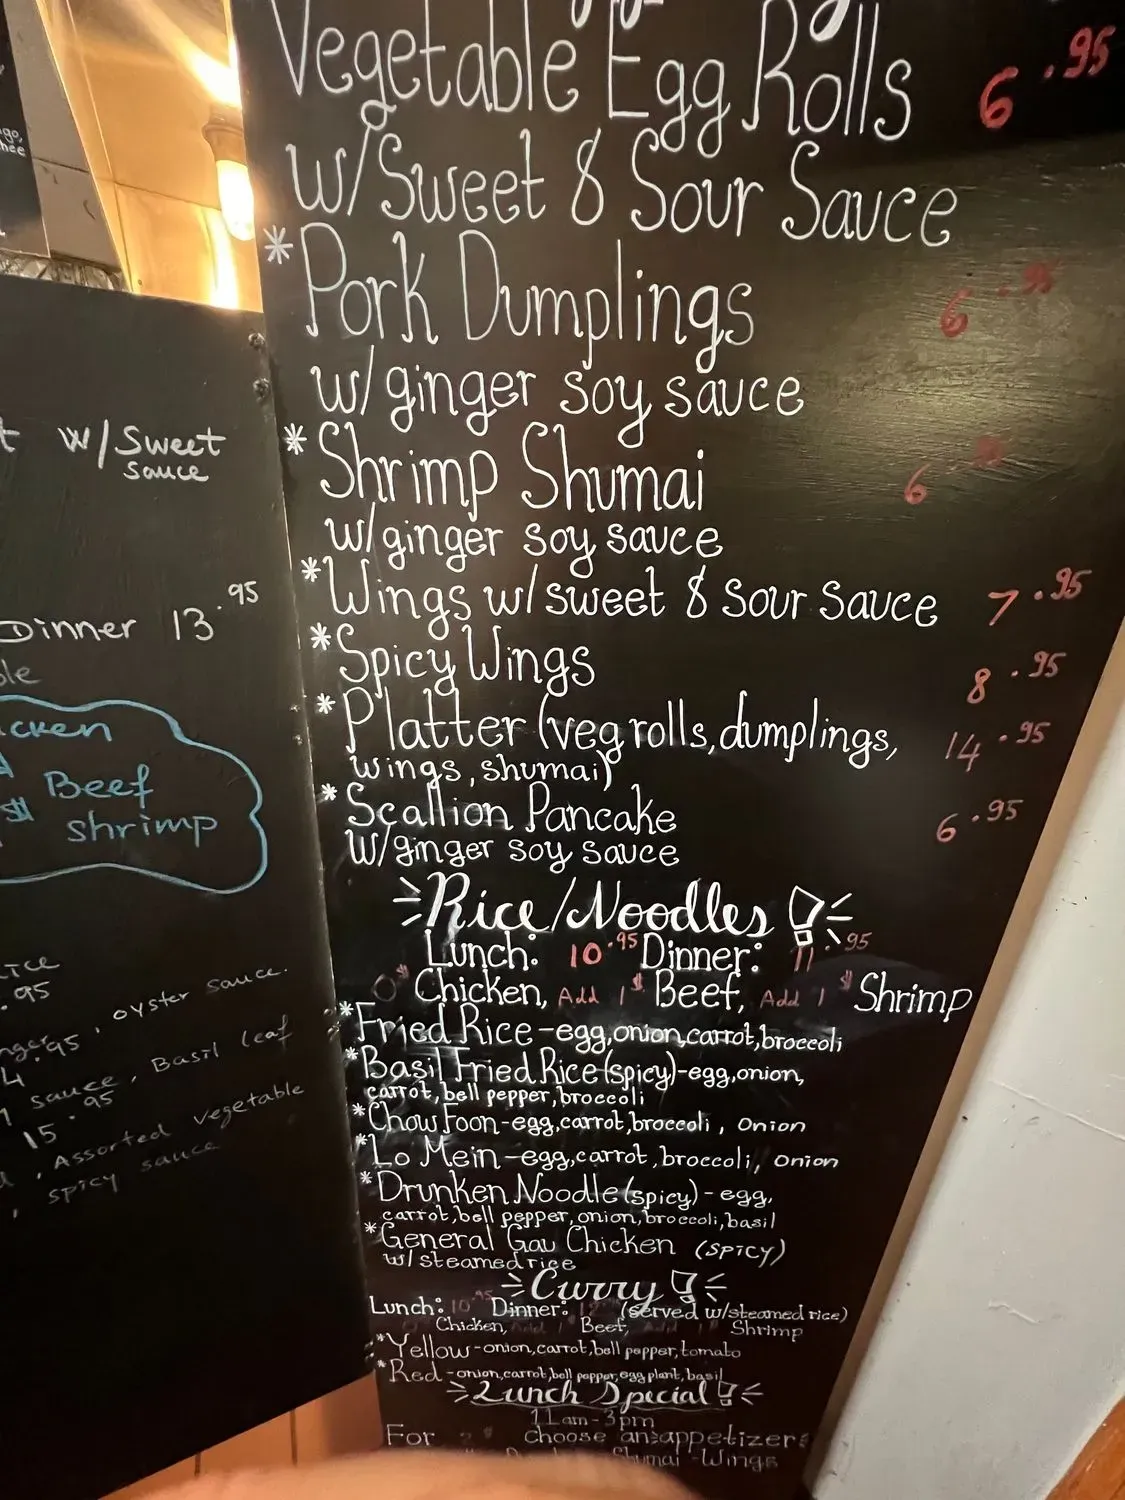 Vegetable Egg Rolls 6.95
w/Sweet & Sour Sauce
*Pork Dumplings 6.95
w/ginger soy sauce
*Shrimp Shumai 6
w/ginger soy sauce
*Wings w/sweet & Sour Sauce 7.95
*Spicy Wings 8.95
*Platter (veg rolls, dumplings, 14.95
wings, shumai)
*Scallion Pancake 6.95
w/ginger soy sauce
Rice/Noodles!
Lunch: 10.95 Dinner: 11.95
Chicken, Add 1$ Beef, Add 1$ Shrimp
*Fried Rice - egg, onion, carrot, broccoli
*Basil Fried Rice (spicy) - egg, onion,
carrot, bell pepper, broccoli
*Chow Foon - egg, carrot, broccoli, onion
*Lo Mein - egg, carrot, broccoli, onion
*Drunken Noodle (spicy) - egg,
carrot, bell pepper, onion, broccoli, basil
*General Gau Chicken (spicy)
w/steamed rice
Curry!
Lunch: 10.95 Dinner: (served w/steamed rice)
Chicken, Beef, Shrimp
*Yellow - onion, carrot, bell pepper, tomato
*Red - onion, carrot, bell pepper, egg plant, basil
Lunch Special!
11am - 3pm
For choose an appetizer:
Shumai - Wings
w/Sweet
sauce
Dinner 13.95
Beef
shrimp
.95
, oyster sauce.
sauce, Basil leaf
15.95
, Assorted vegetable
, spicy sauce